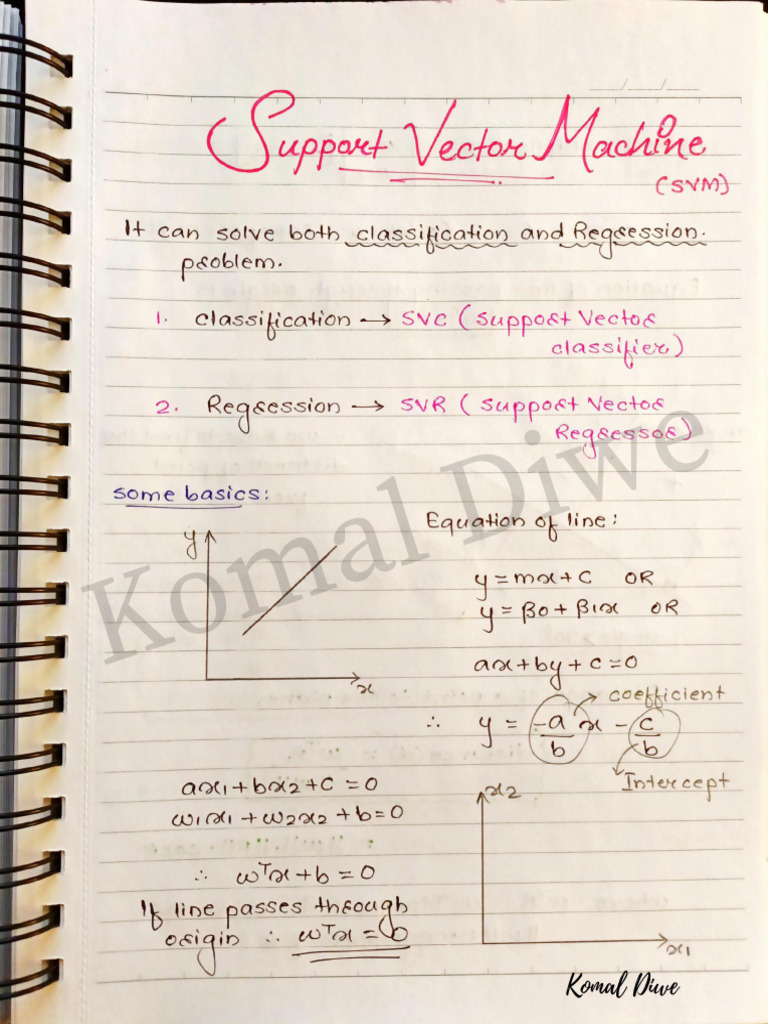 Support Vector Machine
(SVM)
It can solve both classification and Regression.
problem.
1. classification → SVC (Support Vector
classifier)
2. Regression → SVR (Support Vector
Regressor)
some basics:
Equation of line:
y
x
y = mx + c OR
y = β0 + β1x OR
ax + by + c = 0
coefficient
∴ y = -a/b x - c/b
Intercept
ax1 + bx2 + c = 0
w1x1 + w2x2 + b = 0
∴ wᵀx + b = 0
If line passes through
origin ∴ wᵀx = 0
x2
x1
Komal Diwe
Komal Diwe